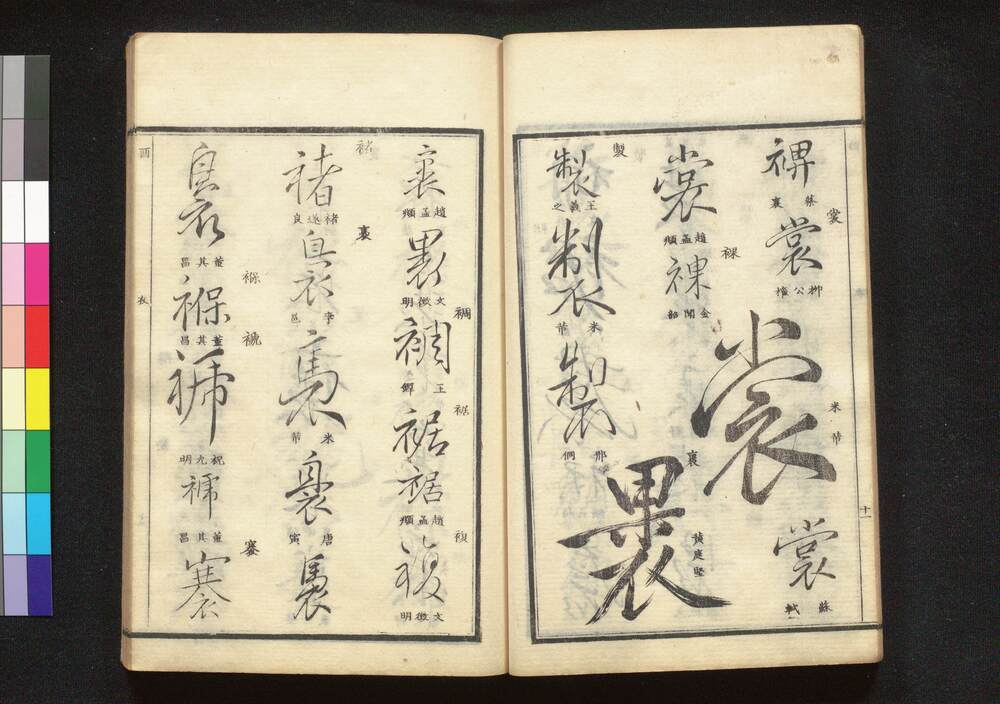 裨
蔡襄
裳
裳
柳公權
裳
米芾
裳
蘇軾
裳
趙孟頫
裸
祼
金聞韶
裹
裹
黃庭堅
製
製
王羲之
製
米芾
製
邢侗
十一
裹
趙孟頫
裹
文徵明
裯
裯
王鐸
裾
裾
裾
趙孟頫
複
複
文徵明
褚
褚
褚遂良
裊
李邕
米芾
唐寅
董其昌
褓
褓
董其昌
褫
祝允明
董其昌
褰
褰
酉
衣